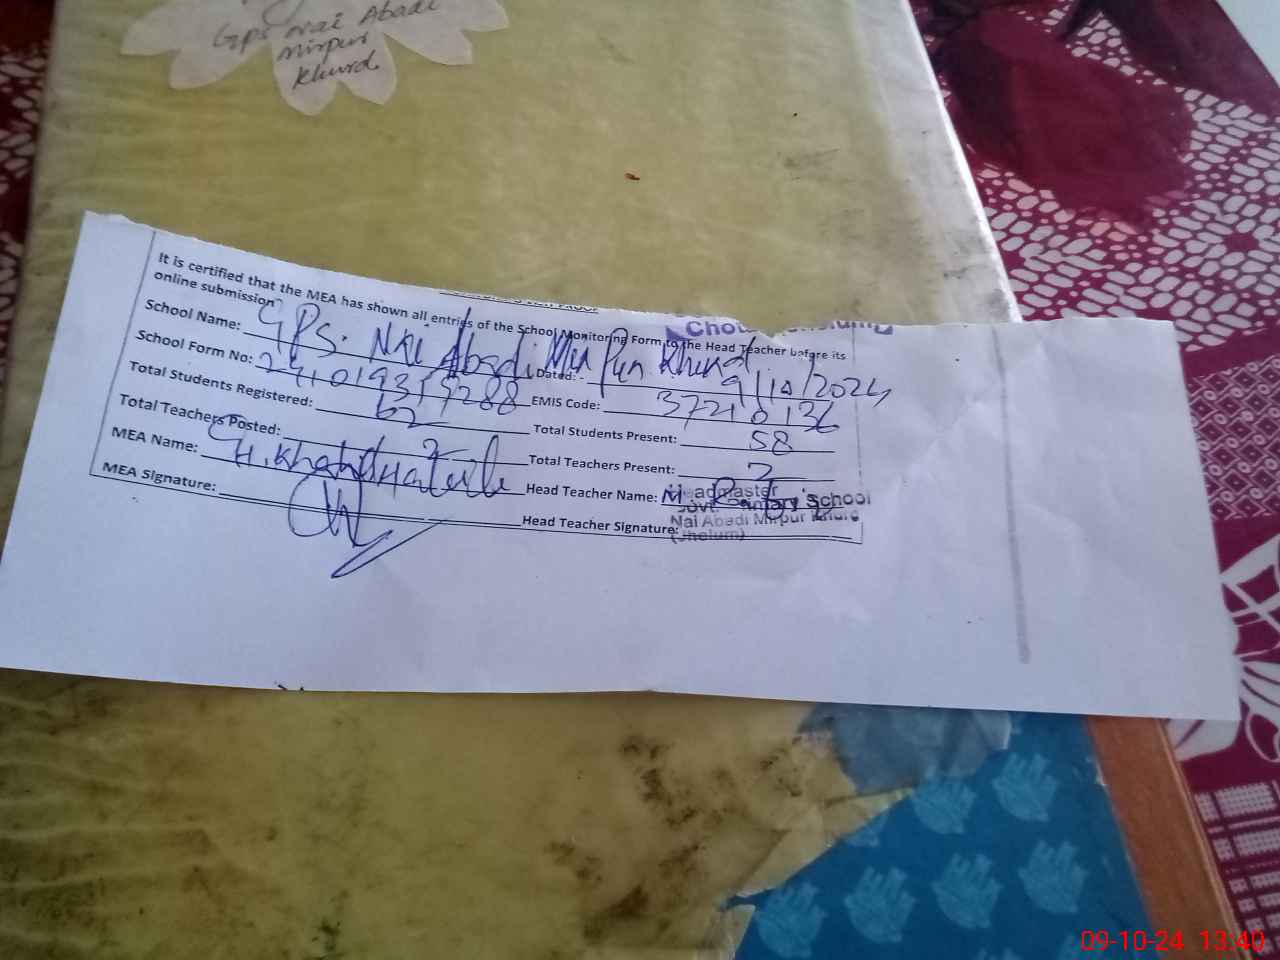 GPS Nai Abadi
Mirpur
Khurd
It is certified that the MEA has shown all entries of the School Monitoring Form to the Head Teacher before its
online submission
School Name: GPS. NAi Abadi Mir Pur Khurd
School Form No: Dated: - 9/10/2024
Total Students Registered: 62 EMIS Code: 37210136
Total Teachers Posted: 2 Total Students Present: 58
MEA Name: Total Teachers Present: 2
MEA Signature: Head Teacher Name: M.
Head Teacher Signature:
Headmaster
Govt. Primary School
Nai Abadi Mirpur Khurd
(Jhelum)
09-10-24 13:40